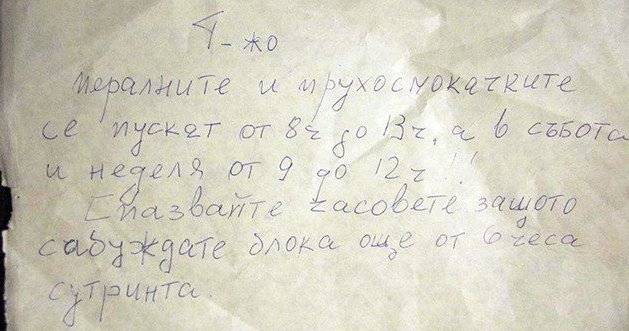 Г-жо
пералните и прухосмокачките
се пускат от 8ч до 13ч. а в събота
и неделя от 9 до 12ч!!
Спазвайте часовете защото
сабуждате блока още от 6 чеса
сутринта.